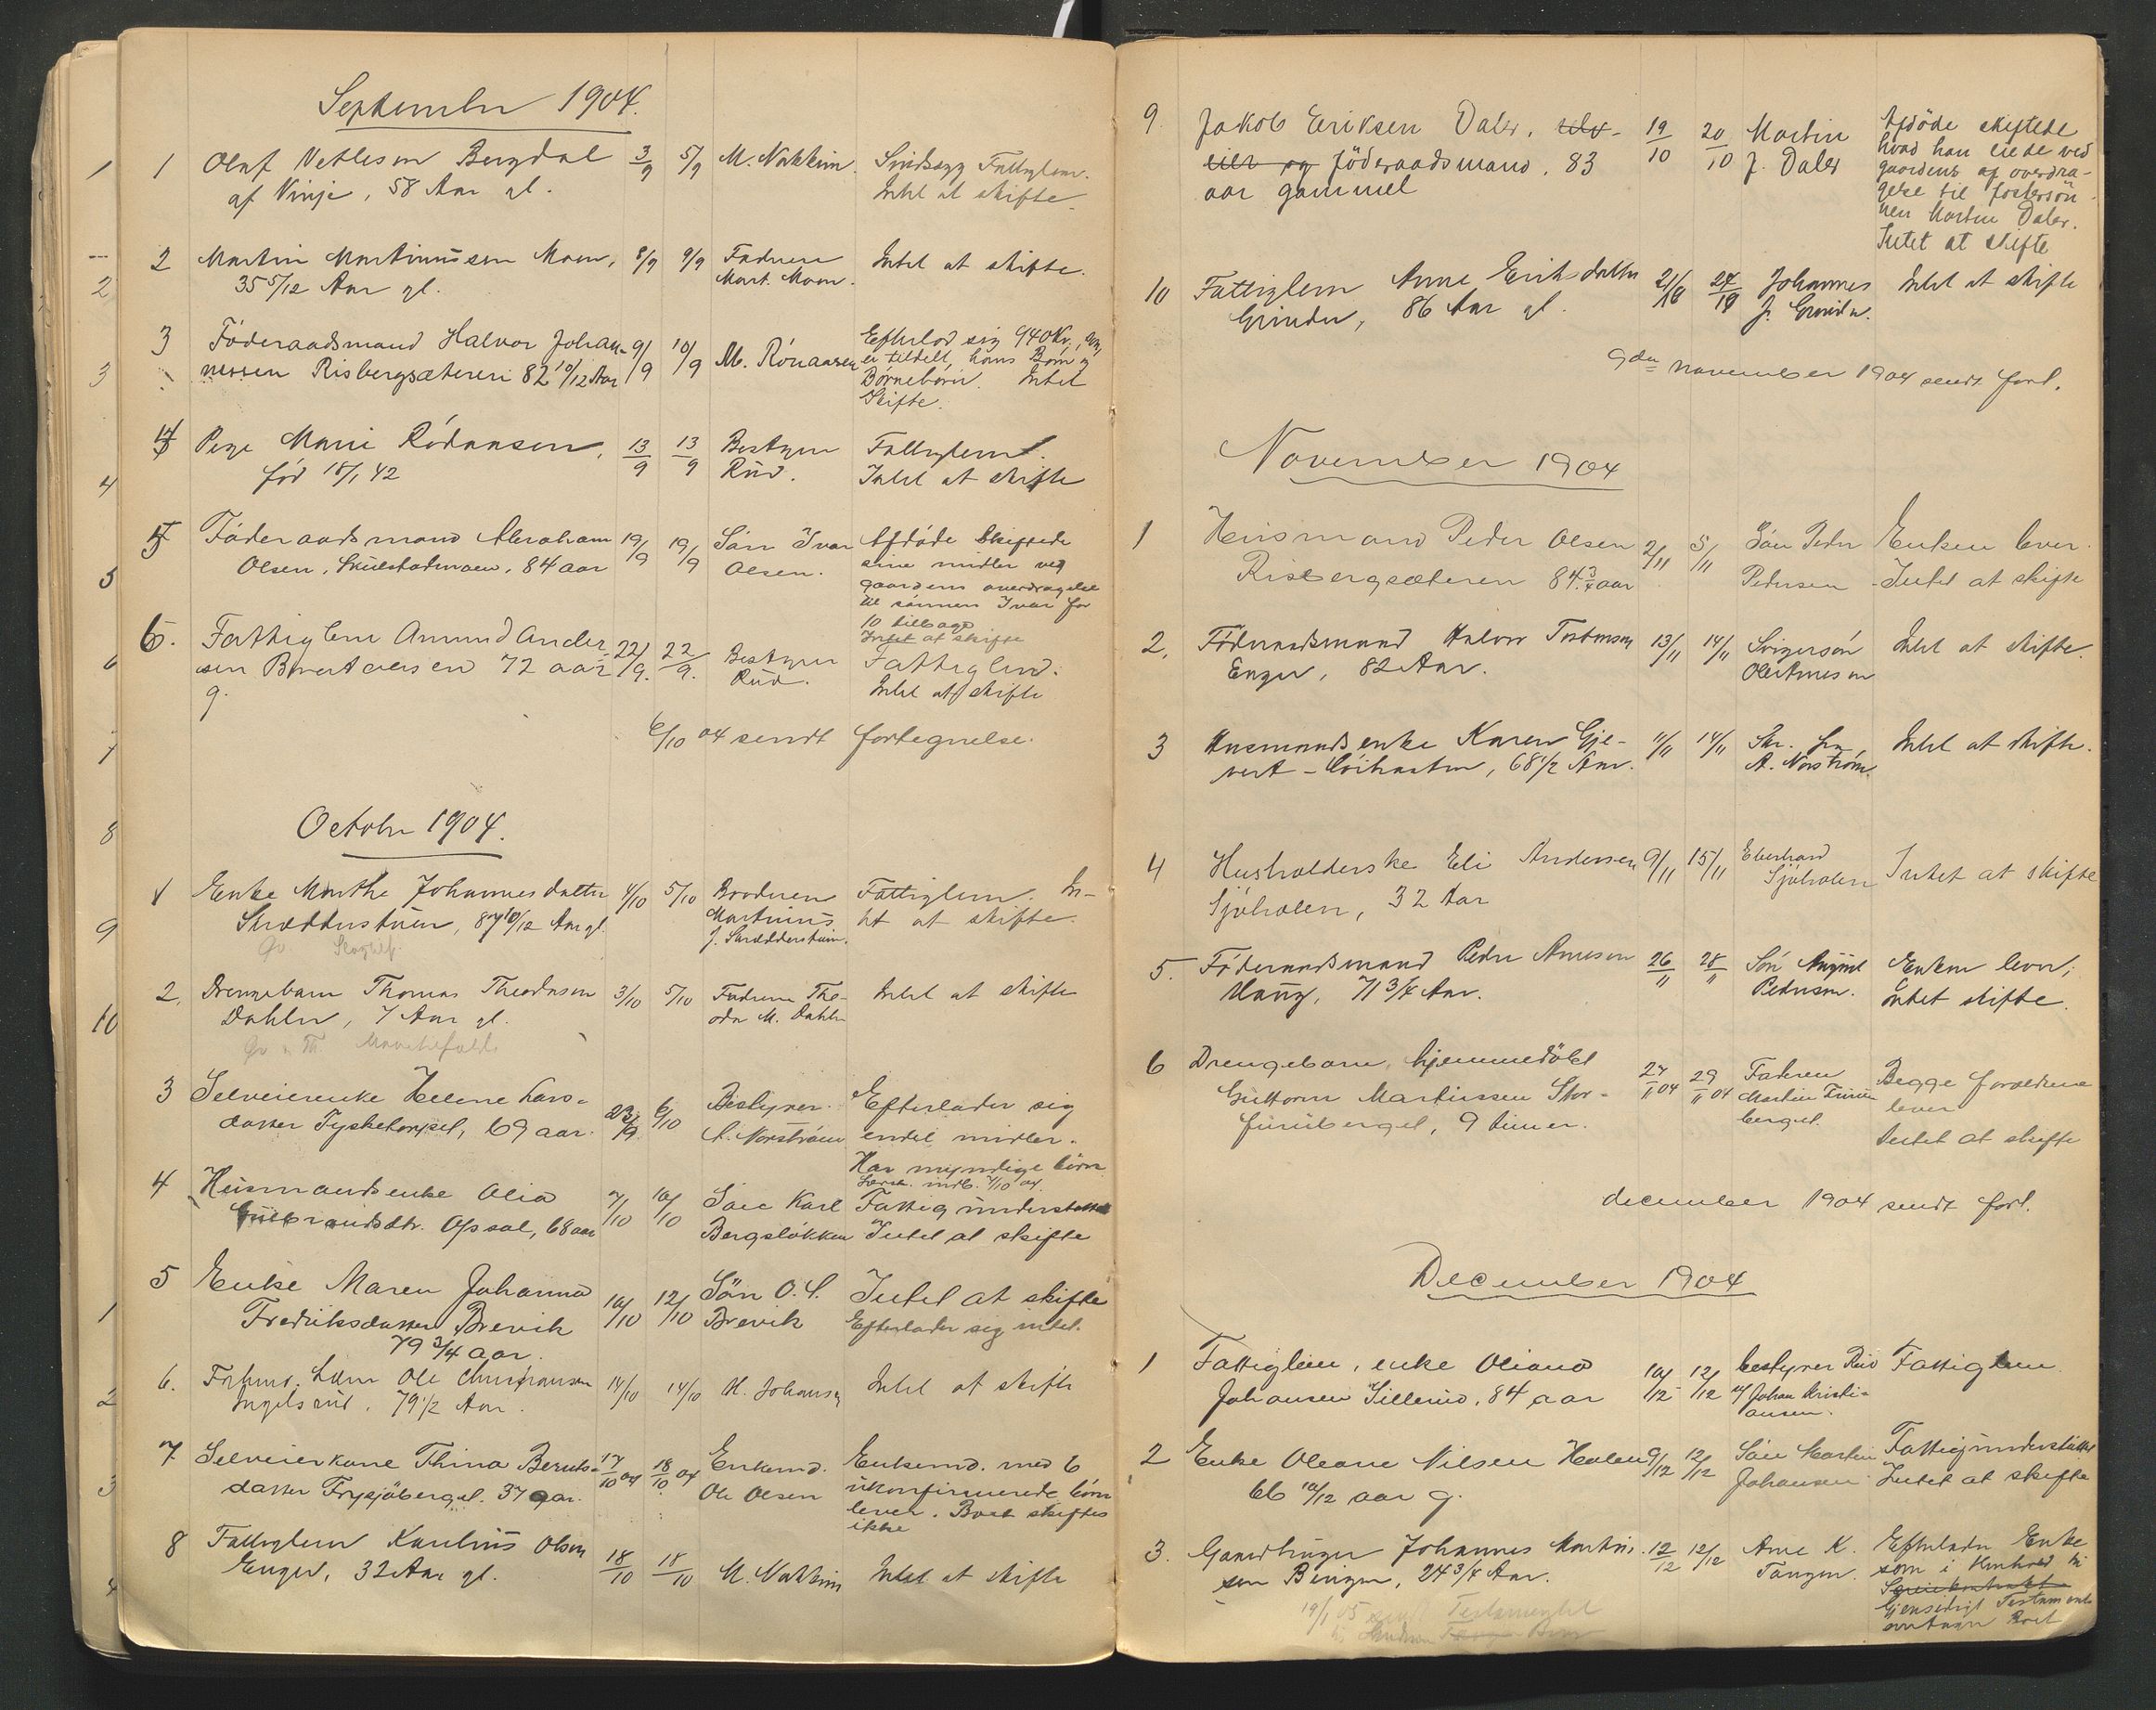 September 1904.
1 Olaf Vetlesen Bergdal 3/9 5/9 M. Nakkim. Sindssyg Fattiglem.
af Vinje, 58 Aar gl. Intet at skifte.
2 Martin Martinussen Moen, 8/9 9/9 Faderen Intet at skifte.
35 5/12 Aar gl. Mart. Moen.
3 Föderaadsmand Halvor Johan- 9/9 10/9 M. Rönaasen Efterlod sig 940 Kr.,
nessen Risbergsæteren 82 10/12 Aar er tildelt hans Börn og
Börnebörn. Intet
Skifte.
4 Pige Marie Rödaasen, 13/9 13/9 Bestyrer Fattiglem.
född 18/1 42 Rud. Intet at skifte
5 Föderaadsmand Abraham 19/9 19/9 Sön Ivar Afdöde skiftede
Olsen, 84 aar Olsen. sine midler ved
gaardens overdragelse
til sönnen Ivar for
10 tilbage
Intet at skifte
6. Fattiglem Amund Ander- 22/9. 22/9. Bestyrer Fattiglem.
sen 72 aar Rud. Intet at skifte
g.
6/10 04 sendt fortegnelse.
October 1904.
1 Enke Marthe Johannesdatter 4/10 5/10 Broderen Fattiglem. In-
Skrædderstuen, 87 10/12 Aar gl. Martinus tet at skifte.
J. Skræddersteuen.
2. Drengebarn Thomas Theodorsen 3/10 5/10 Faderen The- Intet at skifte
Dahler, 7 Aar gl. odor M. Dahler
3 Selveierenke Helene Lars- 23/9 6/10 Bestyrer Efterlader sig
datter Tysketorpet, 69 aar. A. Norström endel midler.
Har myndige börn
indb. 7/10 04.
4 Husmandsenke Olia 7/10 10/10 Sön Karl Fattigunderstøttet
Gulbrandsdtr. Opsal, 68 aar Bergslökken Intet at skifte
5 Enke Maren Johanna 10/10 12/10 Sön O. L. Intet at skifte
Fredriksdatter Brevik Brevik Efterlader sig intet.
79 3/4 aar.
6. Forhend. Lem Ole Christiansen 14/10 14/10 H. Johansen Intet at skifte
Ingelsrud, 79 1/2 Aar.
7 Selveierkone Thina Bernts- 17/10 04 18/10 04 Enkemd. Enkemd. med 6
datter Frysjöberget. 37 aar. Ole Olsen ukonfirmerede börn
lever. Boet skiftes
ikke
8 Fattiglem Karelius Olsen 18/10 18/10 M. Nakkim Intet at skifte
Enger, 32 Aar gl.
9. Jakob Eriksen Daler, selv- 19/10 20/10 Martin Afdöde skiftede
eier og föderaadsmand, 83 J. Daler hvad han eiede ved
aar gammel gaardens overdra-
gelse til fostersön-
nen Martin Daler.
Intet at skifte
10 Fattiglem Anne Eriksdatter 21/10 27/10 Johannes Intet at skifte
Grinder, 86 Aar gl. J. Grinder.
9den november 1904 sendt fort.
November 1904
1 Husmand Peder Olsen 2/11 5/11 Sön Peder Enken lever.
Risbergsæteren 84 3/4 aar Pedersen Intet at skifte
2. Föderaadsmand Halvor Torstensen 13/11 14/11 Svigersön Intet at skifte.
Enger, 82 Aar. Ole Arnesen
3 Husmandsenke Karen Gje- 11/11 14/11 Skr. fra Intet at skifte.
vert-, 68 1/2 Aar. A. Norström.
4 Husholderske Eli Andersen 9/11 15/11 Eberhard Intet at skifte
Sjöholen, 32 Aar Sjöholen
5. Föderaadsmand Peder Arnesen 26/11 28/11 Sön August Enken lever;
Haug, 71 3/4 Aar. Pedersen. Intet skifte.
6 Drengebarn, hjemmedöbt 27/11 04 29/11 04 Faderen Begge forældrene
Guttorm Martinssen Stor- Martin Furu- lever
furuberget, 9 timer. berget. Intet at skifte
december 1904 sendt fort.
December 1904
1 Fattiglem, enke Oliana 10/12 12/12 bestyrer Rud Fattiglem
Johansen Sillerud, 84 aar v/ Johan Kristi-
ansen.
2 Enke Oleane Nilsen Holen 9/12 12/12 Sön Martin Fattigunderstøttet
66 10/12 aar g. Johansen Intet at skifte
3. Gaardbruger Johannes Martin- 12/12 12/12 Arne K. Efterlader Enke
sen Bingen, 24 3/4 Aar. Tangen. som i Henhold til
Gjensidigt Testament
overtager Boet
19/1 05 sendt Testamentet
1
2
3
4
5
6
7
8
9
10
1
2
3
4